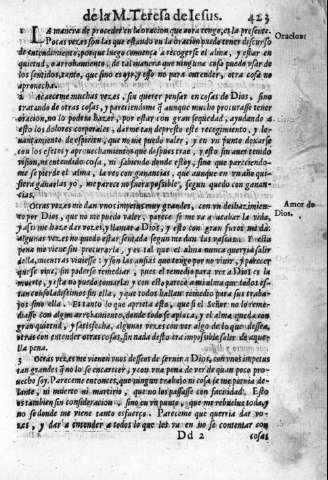 de la M. Teresa de Iesus. 423
1 LA manera de proceder en la oracion que aora tengo, es la presente. Oracion:
Pocas vezes son las que estando en la oracion puedo tener discurso
de entendimiento, porque luego comiença a recogerse el alma, y estar en
quietud, o arrobamiento, de tal manera que ninguna cosa puedo vsar de
los sentidos, tanto, que sino es oyr, y esso no para entender, otra cosa no
aprouecha.
2 Acaeceme muchas vezes, sin querer pensar en cosas de Dios, sino
tratando de otras cosas, y pareciendome q̃ aunque mucho procurasse tener
oracion, no lo podria hazer, por estar con gran sequedad, ayudando a
esto los dolores corporales, darme tan depresto este recogimiento, y le-
uantamiento de espiritu, que no me puedo valer, y en vn punto dexarme
con los efetos y aprouechamientos que despues trae, y esto sin auer tenido
vision, ni entendido cosa, ni sabiendo donde estoy, sino que pareciendo-
me se pierde el alma, la veo con ganancias, que aunque en vn año qui-
siera ganarlas yo, me parece no fuera possible, segun quedo con ganan-
cias.
Otras vezes me dan vnos impetus muy grandes, con vn deshazimien-
to por Dios, que no me puedo valer, parece se me va a acabar la vida, Amor de
y assi me haze dar vozes, y llamar a Dios, y esto con gran furor me dà: Dios.
algunas vezes no puedo estar sentada segun me dan las vascas: Y esta
pena me viene sin procurarla, y es tal que el alma nunca querria salir
della, mientras viuiesse: y son las ansias que tengo por no viuir, y parecer
que se viue, sin poderse remediar, pues el remedio para ver a Dios es la
muerte, y esta no puedo tomarla: y con esto parece a mi alma que todos es-
tan consoladissimos sino ella, y que todos hallan remedio para sus traba-
jos sino ella. Es tanto lo que aprieta esto, que si el Señor no lo reme-
diasse con algun arrobamiento, donde todo se aplaca, y el alma queda con
gran quietud, y satisfecha, algunas vezes con ver algo de lo que dessea,
otras con entender otras cosas, sin nada desto era impossible salir de aque-
lla pena.
3 Otras vezes me vienen vnos desseos de seruir a Dios, con vnos impetus
tan grandes q̃ no lo sè encarecer, y con vna pena de ver de quan poco proue-
cho soy. Pareceme entonces, que ningun trabajo ni cosa se me pornia de-
lante, ni muerte ni martirio, que no los passasse con facilidad. Esto
es tambien sin consideracion, sino en vn punto, que me rebuelue toda, y
no se donde me viene tanto esfuerço. Pareceme que querria dar vo-
zes, y dar a entender a todos lo que les va en no se contentar con
Dd 2 cosas